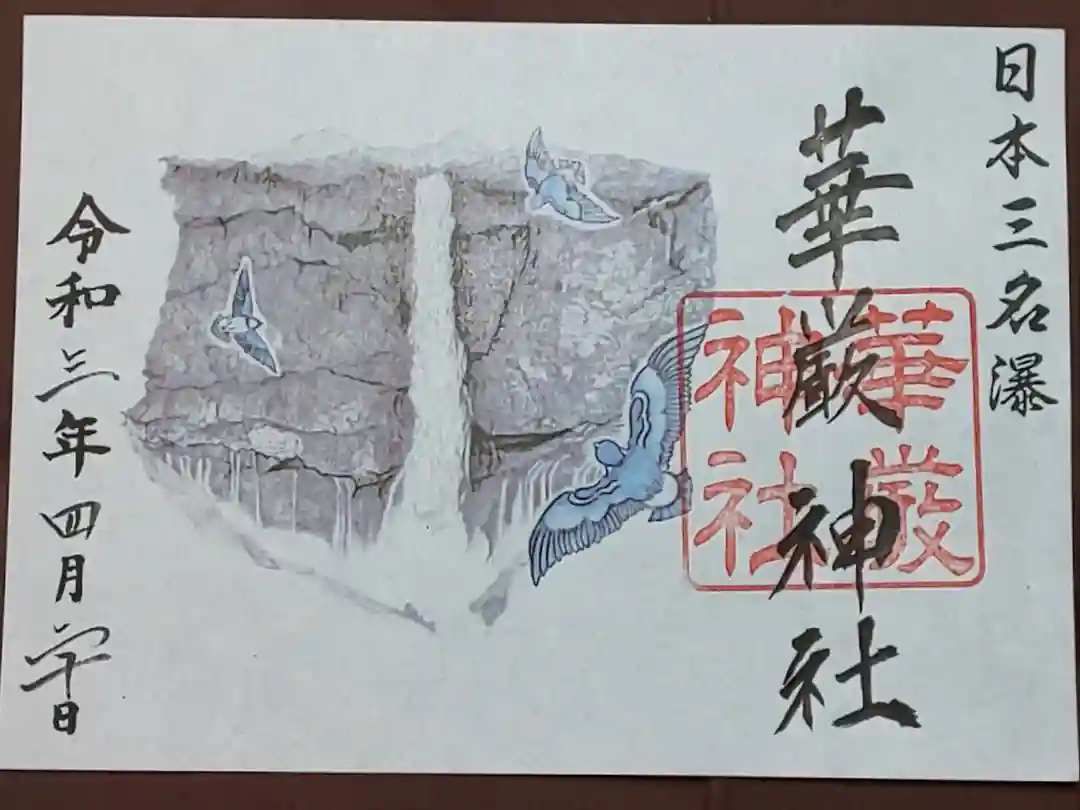 日本三名瀑
華厳神社
華厳
神社
令和三年四月
日